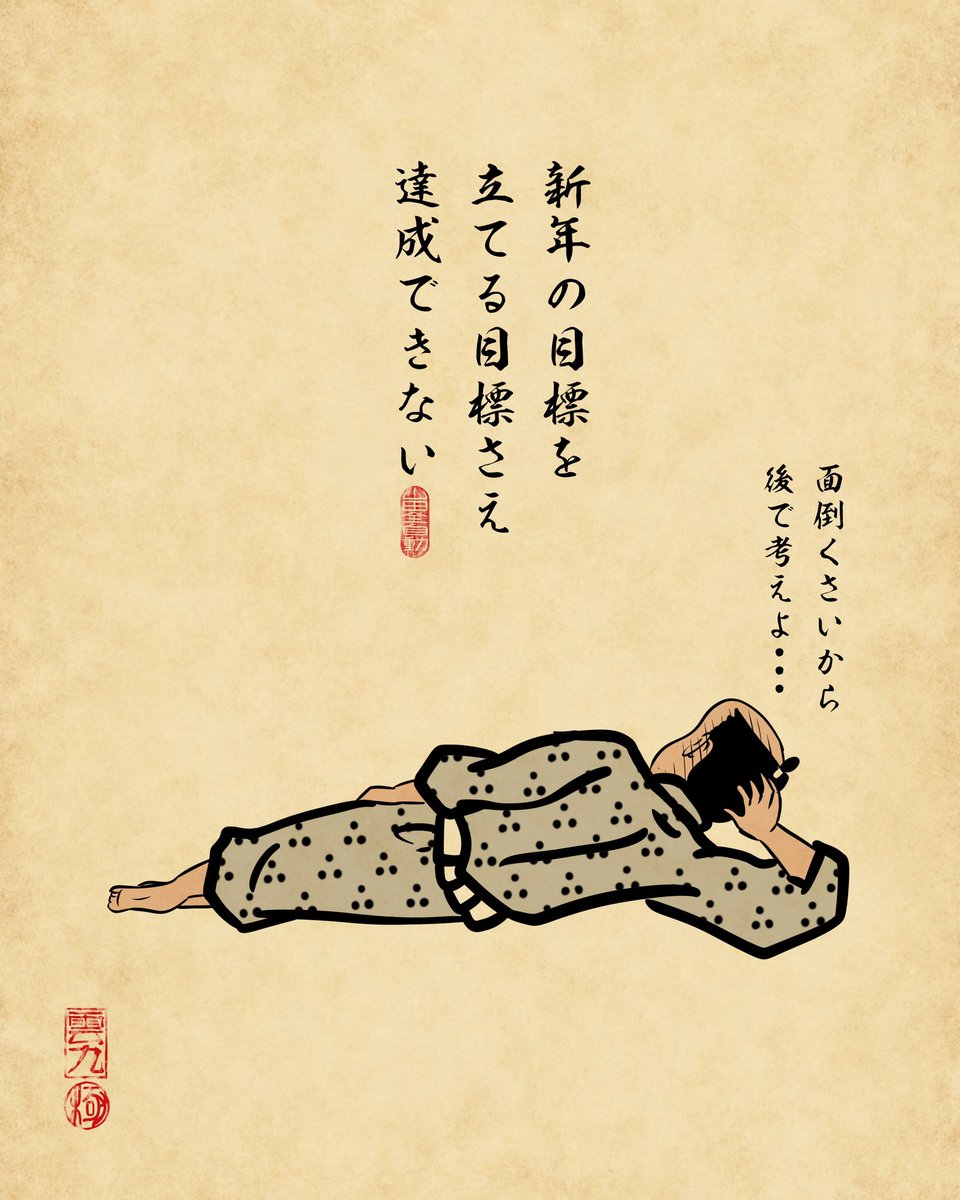 新年の目標を
立てる目標さえ
達成できない
面倒くさいから
後で考えよ・・・